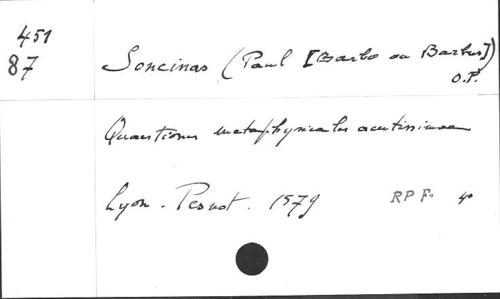 451
87
Soncinas (Paul [Barbo ou Barbus])
O.P.
Quaestiones metaphysicales acutissimae
Lyon - Pesnot. 1579 RPF. 4°